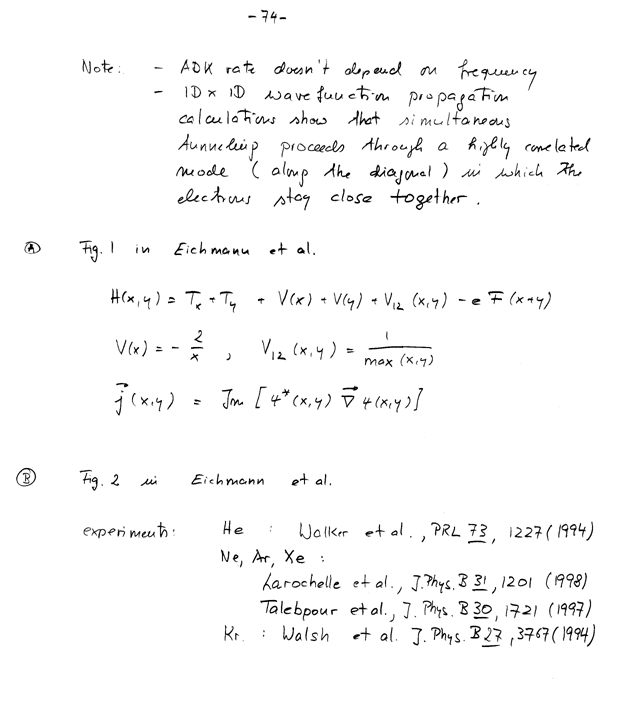 -74-
Note: - ADK rate doesn't depend on frequency
- 1D x 1D wavefunction propagation
calculations show that simultaneous
tunneling proceeds through a highly correlated
mode (along the diagonal) in which the
electrons stay close together.
Ⓐ Fig. 1 in Eichmann et al.
H(x,y) = Tx + Ty + V(x) + V(y) + V12 (x,y) - e F (x+y)
V(x) = - 2/x , V12 (x,y) = 1/max (x,y)
j⃗ (x,y) = Im [ψ*(x,y) ∇⃗ ψ(x,y)]
Ⓑ Fig. 2 in Eichmann et al.
experiments: He : Walker et al., PRL 73, 1227 (1994)
Ne, Ar, Xe :
Larochelle et al., J. Phys. B 31, 1201 (1998)
Talebpour et al., J. Phys. B 30, 1721 (1997)
Kr. : Walsh et al. J. Phys. B 27, 3767 (1994)